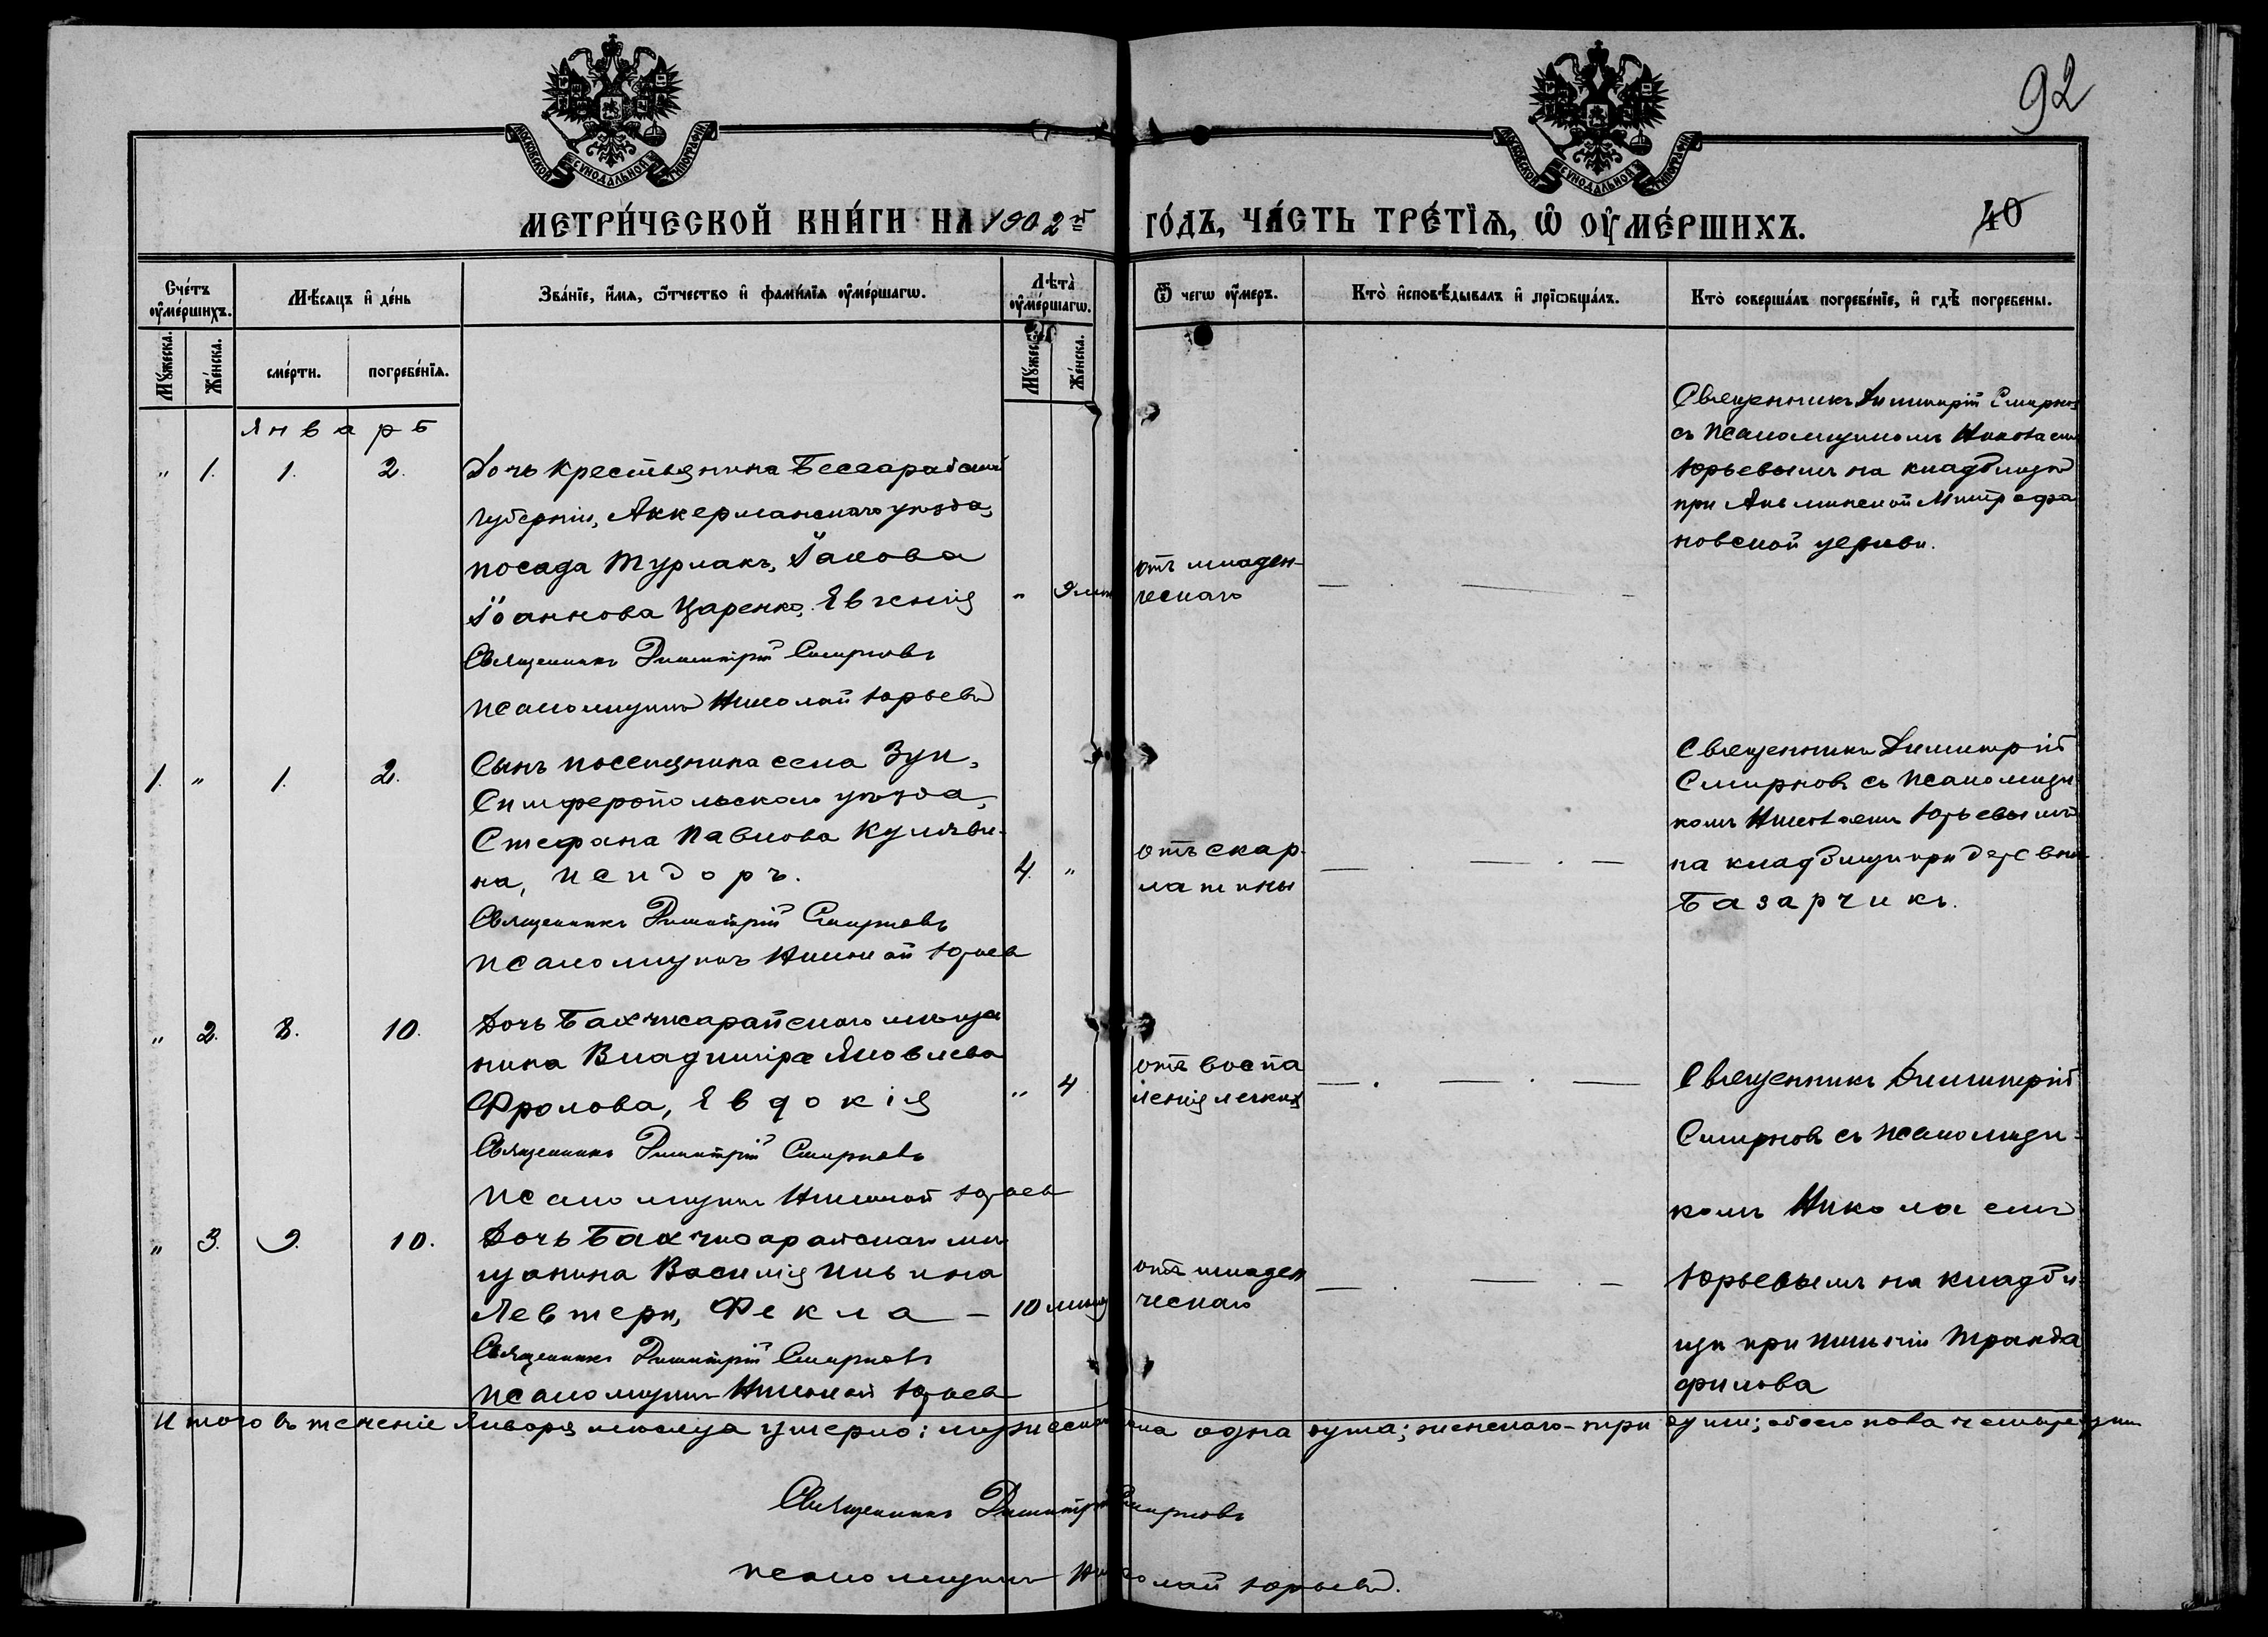 92
МОСКОВСКОЙ СѴНОДАЛЬНОЙ ТИПОГРАФІИ
МОСКОВСКОЙ СѴНОДАЛЬНОЙ ТИПОГРАФІИ
МЕТРИ́ЧЕСКОЙ КНИ́ГИ НА 1902й ГО́ДЪ, ЧА́СТЬ ТРЕ́ТІѦ, Ѡ҆ ОУ҆МЕ́РШИХЪ.
40
Сче́тъ оу҆ме́ршихъ.
Мѣ́сяцъ и҆ де́нь
Зва́нїе, и҆́мя, ѻ҆́тчество и҆ фами́лїя оу҆ме́ршагѡ.
Лѣта̀ оу҆ме́ршагѡ.
Ѿ чегѡ оу҆́меръ.
Кто̀ и҆сповѣ́дывалъ и҆ прїѡбща́лъ.
Кто̀ соверша́лъ погребе́нїе, и҆ гдѣ̀ погребены.
Мꙋ́жеска.
Же́нска.
сме́рти.
погребе́нїя.
Мꙋ́жеска.
Же́нска.
Январь
" 1. 1. 2.
Дочь крестьянина Бессарабской
губерніи, Аккерманскаго уѣзда,
посада Турлакъ, Іакова
Іоаннова Царенко, Евгенія
Священникъ Димитрій Смирновъ
Псаломщикъ Николай Юрьевъ
" 9
отъ младен-
ческаго
Священникъ Димитрій Смирновъ
съ псаломщикомъ Николаемъ
Юрьевымъ на кладбищѣ
при Альминской Митрофа
новской церкви.
1. " 1. 2.
Сынъ поселянина села Зуи,
Симферопольскаго уѣзда,
Стефана Павлова
на, Исидоръ.
Священникъ Димитрій Смирновъ
Псаломщикъ Николай Юрьевъ
4. "
отъ скар-
латины
Священникъ Димитрій
Смирновъ съ псаломщи
комъ Николаемъ Юрьевымъ
на кладбищѣ при деревни
Базарчикъ.
" 2. 8. 10.
Дочь Бахчисарайскаго мѣща
нина Владиміра Яковлева
Фролова, Евдокія
Священникъ Димитрій Смирновъ
Псаломщикъ Николай Юрьевъ
" 4
отъ воспа
ленія легкихъ
Священникъ Димитрій
Смирновъ съ псаломщи-
комъ Николаемъ
Юрьевымъ на кладби
щѣ при Транда
филова
" 3. 9. 10.
Дочь Бахчисарайскаго мѣ
щанина Василія Ильина
Левтери, Фекла —
Священникъ Димитрій Смирновъ
Псаломщикъ Николай Юрьевъ
10
отъ младен
ческаго
Итого въ теченіе Января мѣсяца умерло: мужескаго пола одна душа; женскаго - три души; обоего пола четыре души
Священникъ Димитрій Смирновъ
Псаломщикъ Николай Юрьевъ.